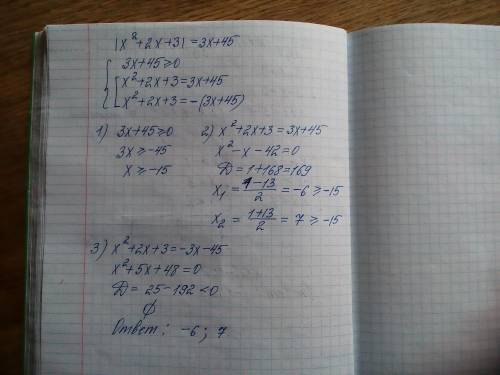 |x²+2x+3|=3x+45
3x+45≥0
x²+2x+3=3x+45
x²+2x+3=-(3x+45)
1) 3x+45≥0
3x≥-45
x≥-15
2) x²+2x+3=3x+45
x²-x-42=0
D=1+168=169
x₁=(1-13)/2=-6≥-15
x₂=(1+13)/2=7≥-15
3) x²+2x+3=-3x-45
x²+5x+48=0
D=25-192<0
∅
Ответ: -6; 7